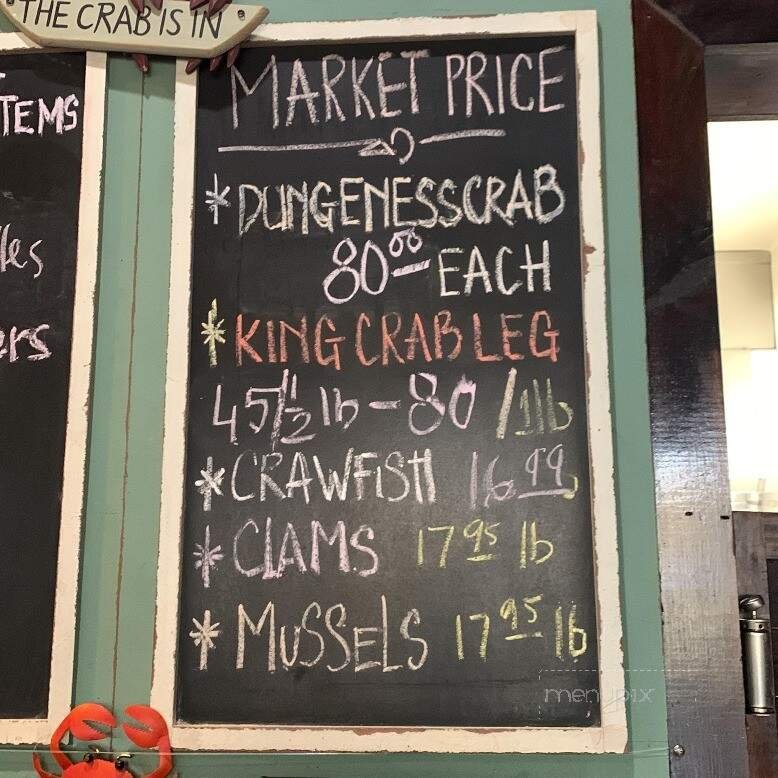 THE CRAB IS IN
TEMS
les
ers
MARKET PRICE
*DUNGENESSCRAB
80⁰⁰ EACH
*KING CRAB LEG
45/½ lb - 80 /1lb
*CRAWFISH 16.99
*CLAMS 17 95 lb
*MUSSELS 17 95 lb
menupix